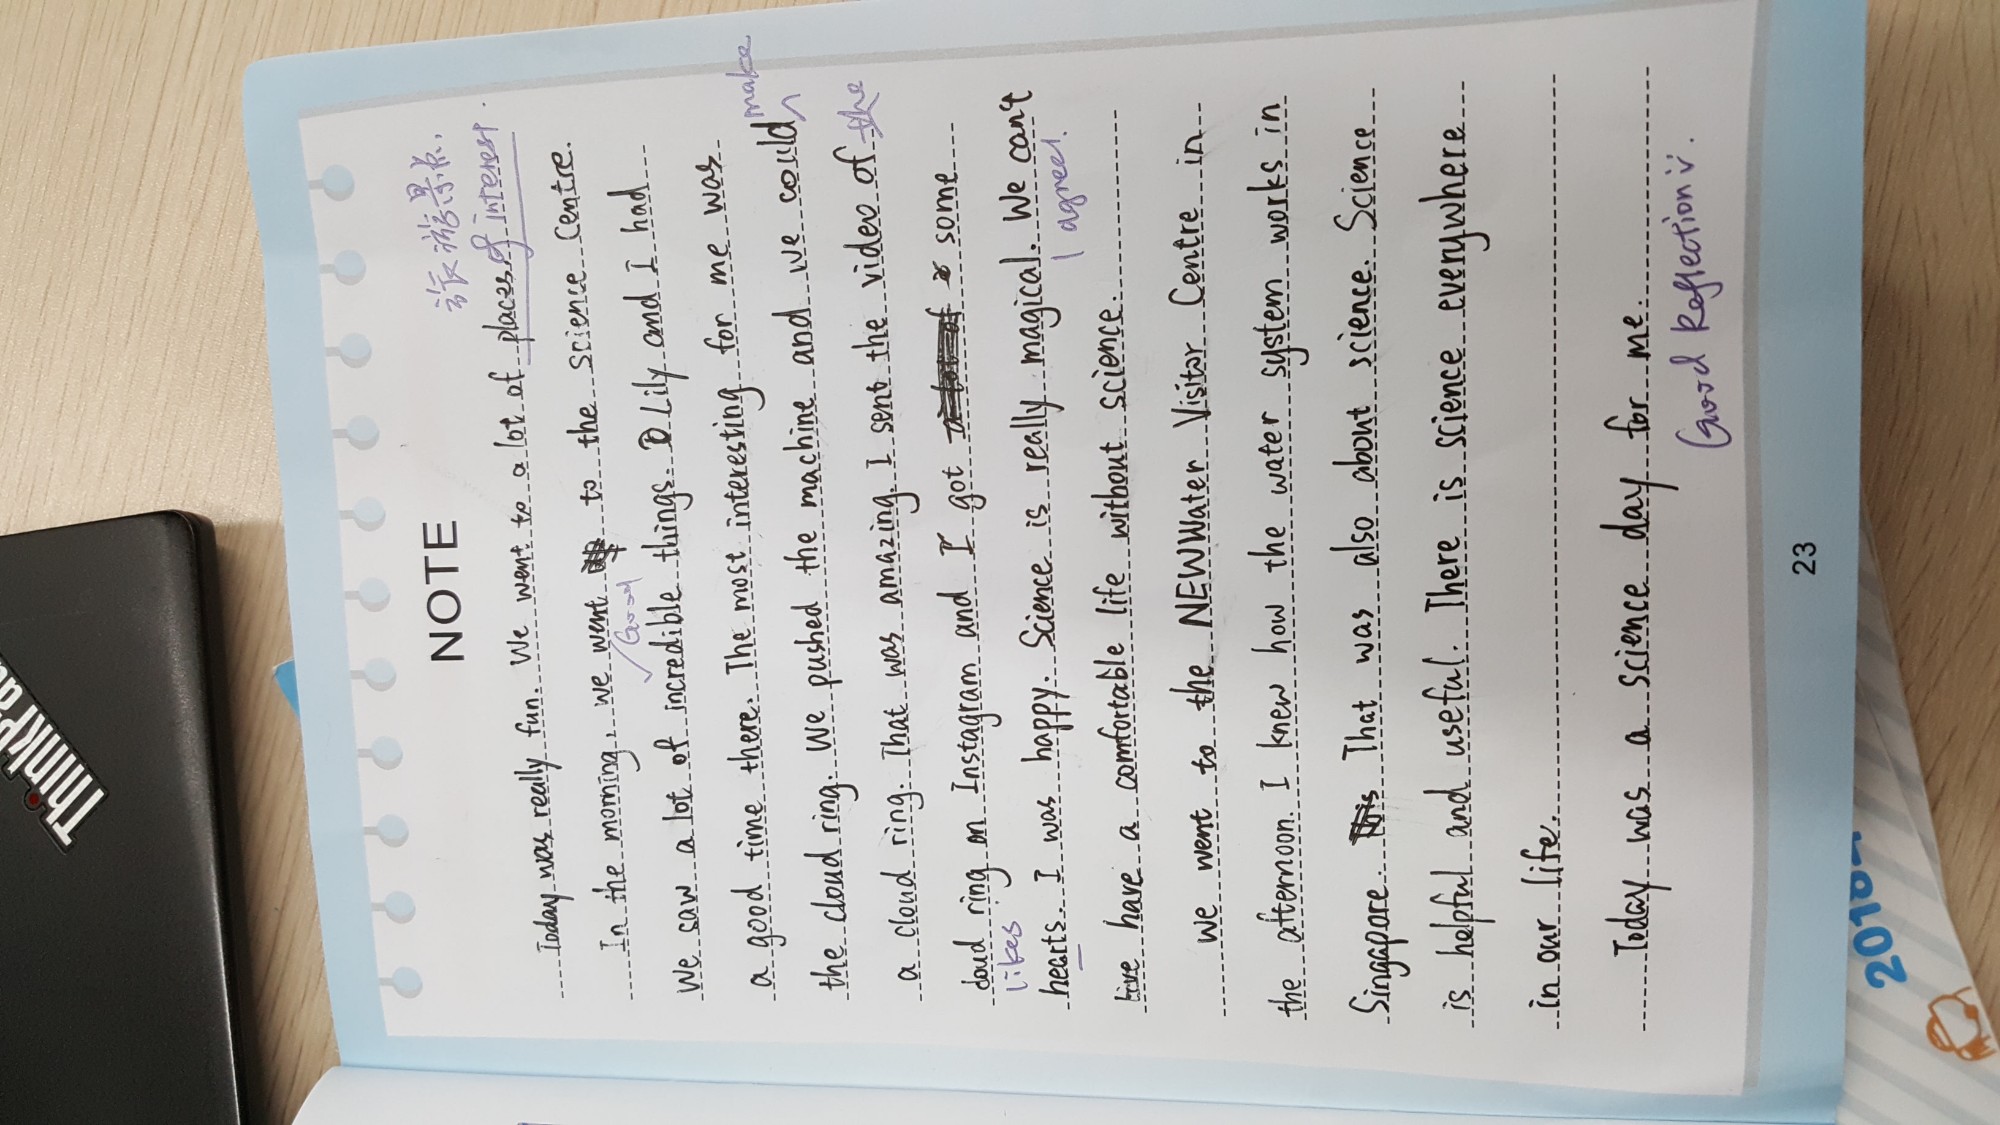 NOTE
旅游景点.
Today was really fun. We went to a lot of places of interest.
In the morning, we went to the science Centre.
Good
We saw a lot of incredible things. Lily and I had
a good time there. The most interesting for me was
the cloud ring. We pushed the machine and we could make
a cloud ring. That was amazing. I sent the video of the
cloud ring on Instagram and I got some
likes
hearts. I was happy. Science is really magical. We can't
I agree!
have a comfortable life without science.
We went to the NEWWater Visitor Centre in
the afternoon. I knew how the water system works in
Singapore. That was also about science. Science
is helpful and useful. There is science everywhere
in our life.
Today was a science day for me.
Good Reflection
23
ThinkPad